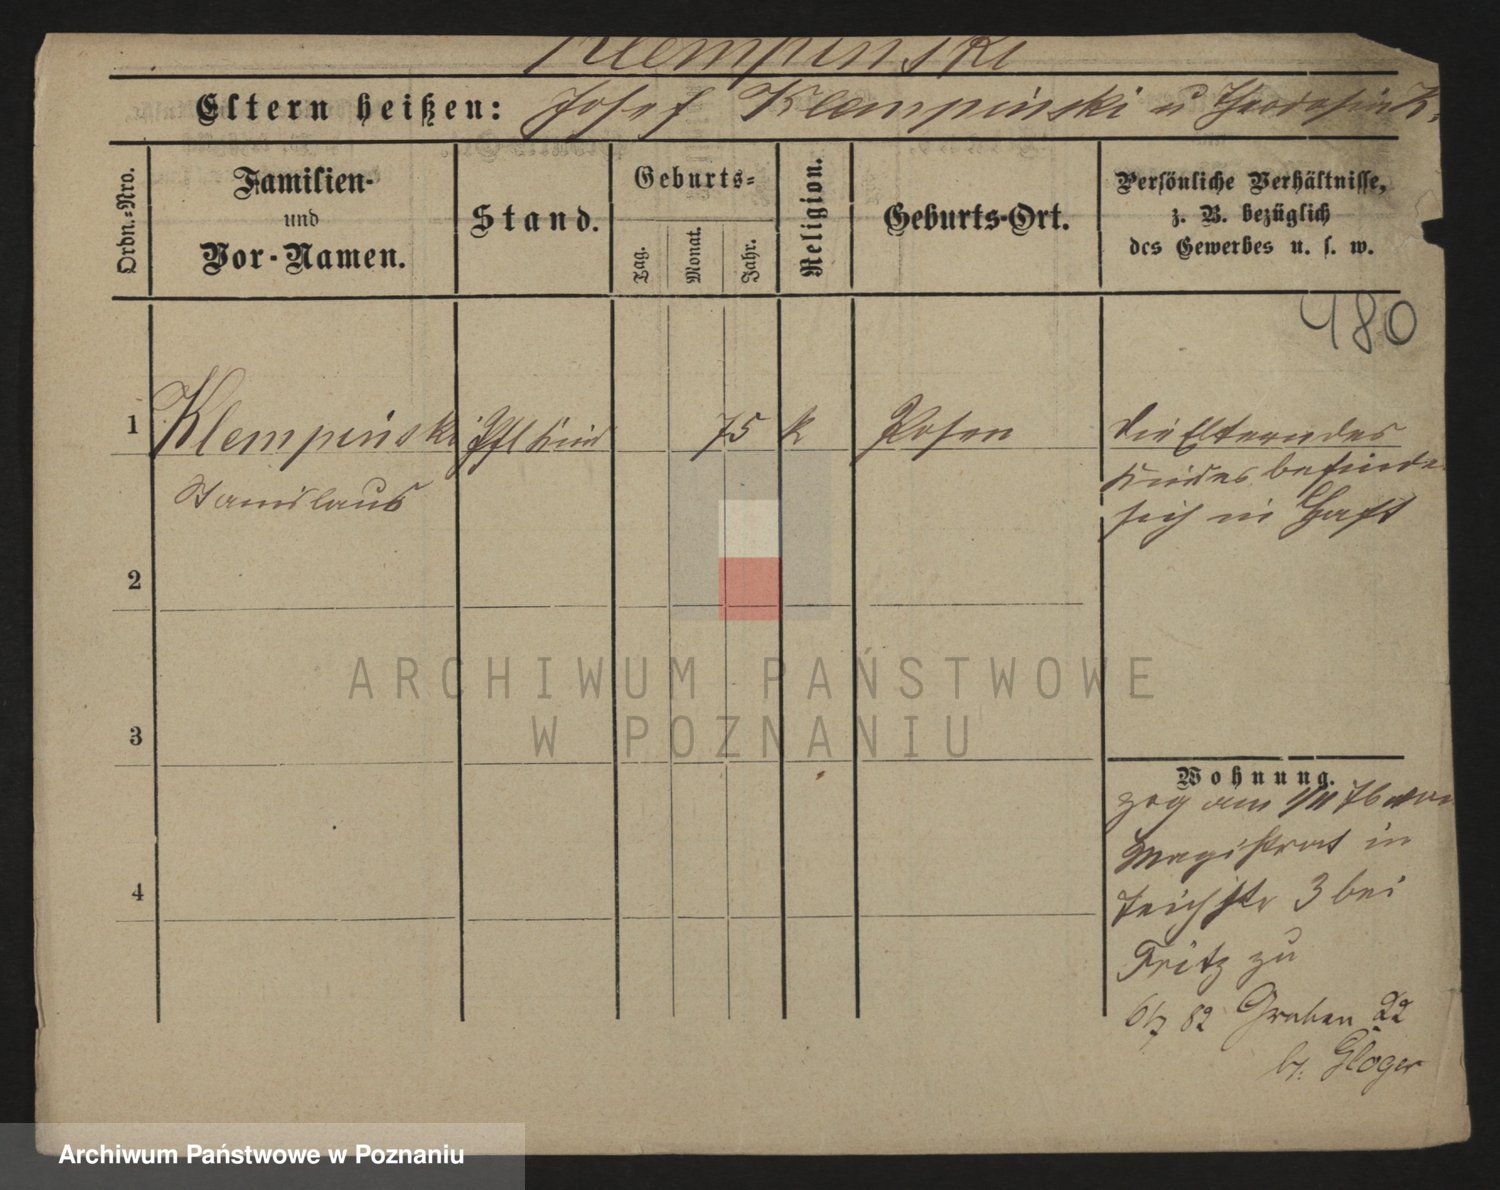 Klempinski
Eltern heißen: Josef Klempinski u Theodosia K.
Ordn.-Nro.
Familien-
und
Vor-Namen.
Stand.
Geburts-
Tag.
Monat.
Jahr.
Religion.
Geburts-Ort.
Persönliche Verhältnisse,
z. B. bezüglich
des Gewerbes u. s. w.
480
1 Klempinski Pfl Kind 75 k Posen
Stanislaus
die Eltern des
Kindes befinde
sich in Haft
2
3
4
Wohnung.
zog am 1/11 76 vom
Magistrat in
Teichstr 3 bei
Fritz zu
6/7 82 Graben 22
b. Gloger
ARCHIWUM PAŃSTWOWE
W POZNANIU
Archiwum Państwowe w Poznaniu